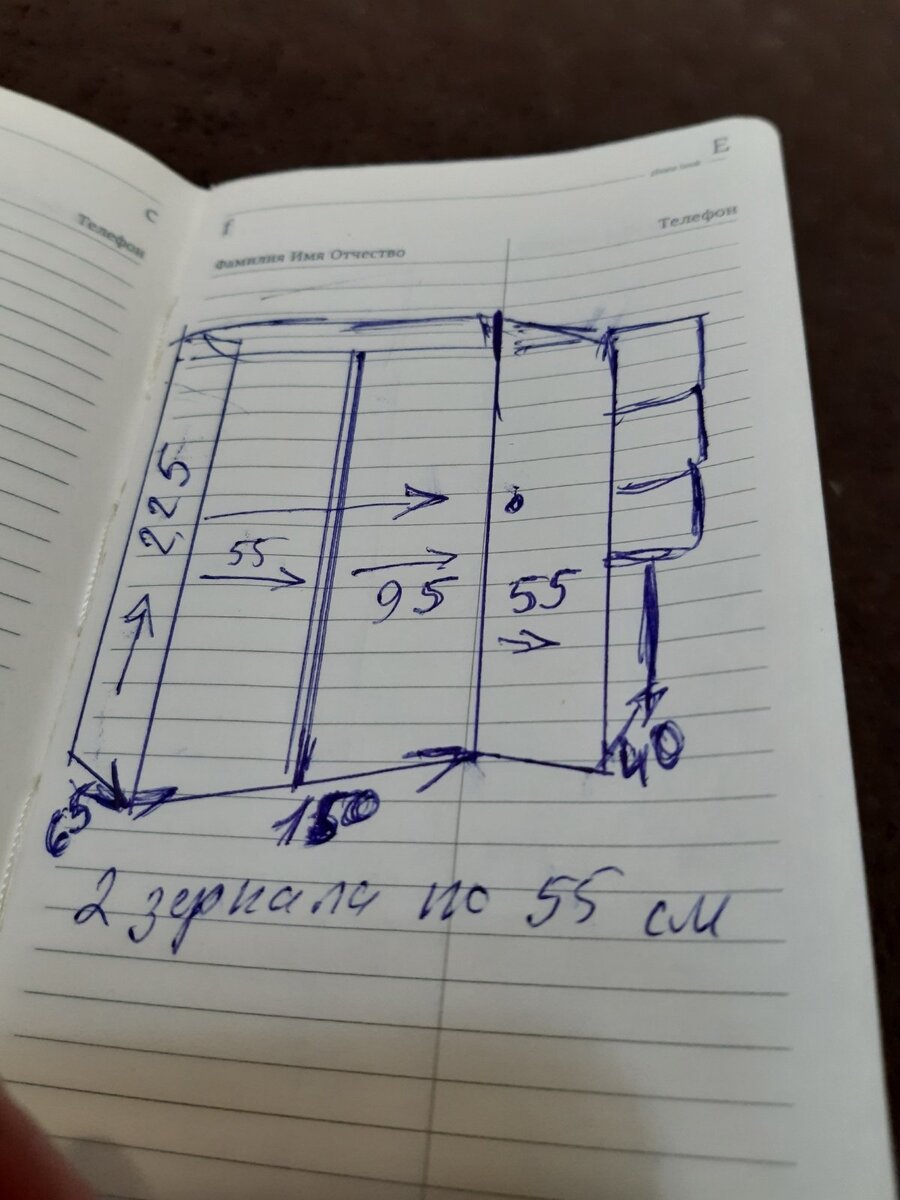 E
phone book
C
f
Телефон
Телефон
Фамилия Имя Отчество
2,25
55
95
55
65
150
40
2 зеркала по 55 см